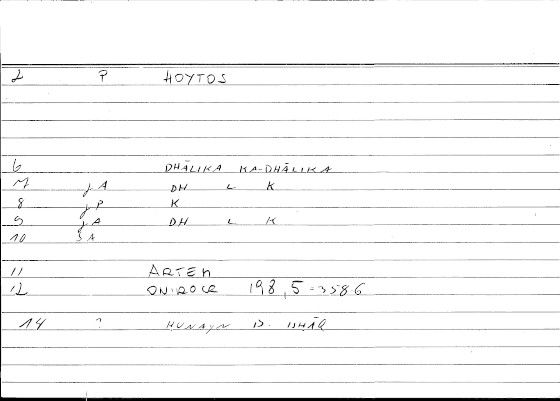 2 P HOYTOS
6 DHĀLIKA KA-DHĀLIKA
7 jA DH L K
8 jP K
9 jA DH L K
10 SA
11 ARTEM
12 ONIROCR 198,5 = 358 6
14 ? HUNAYN B. ISHĀQ